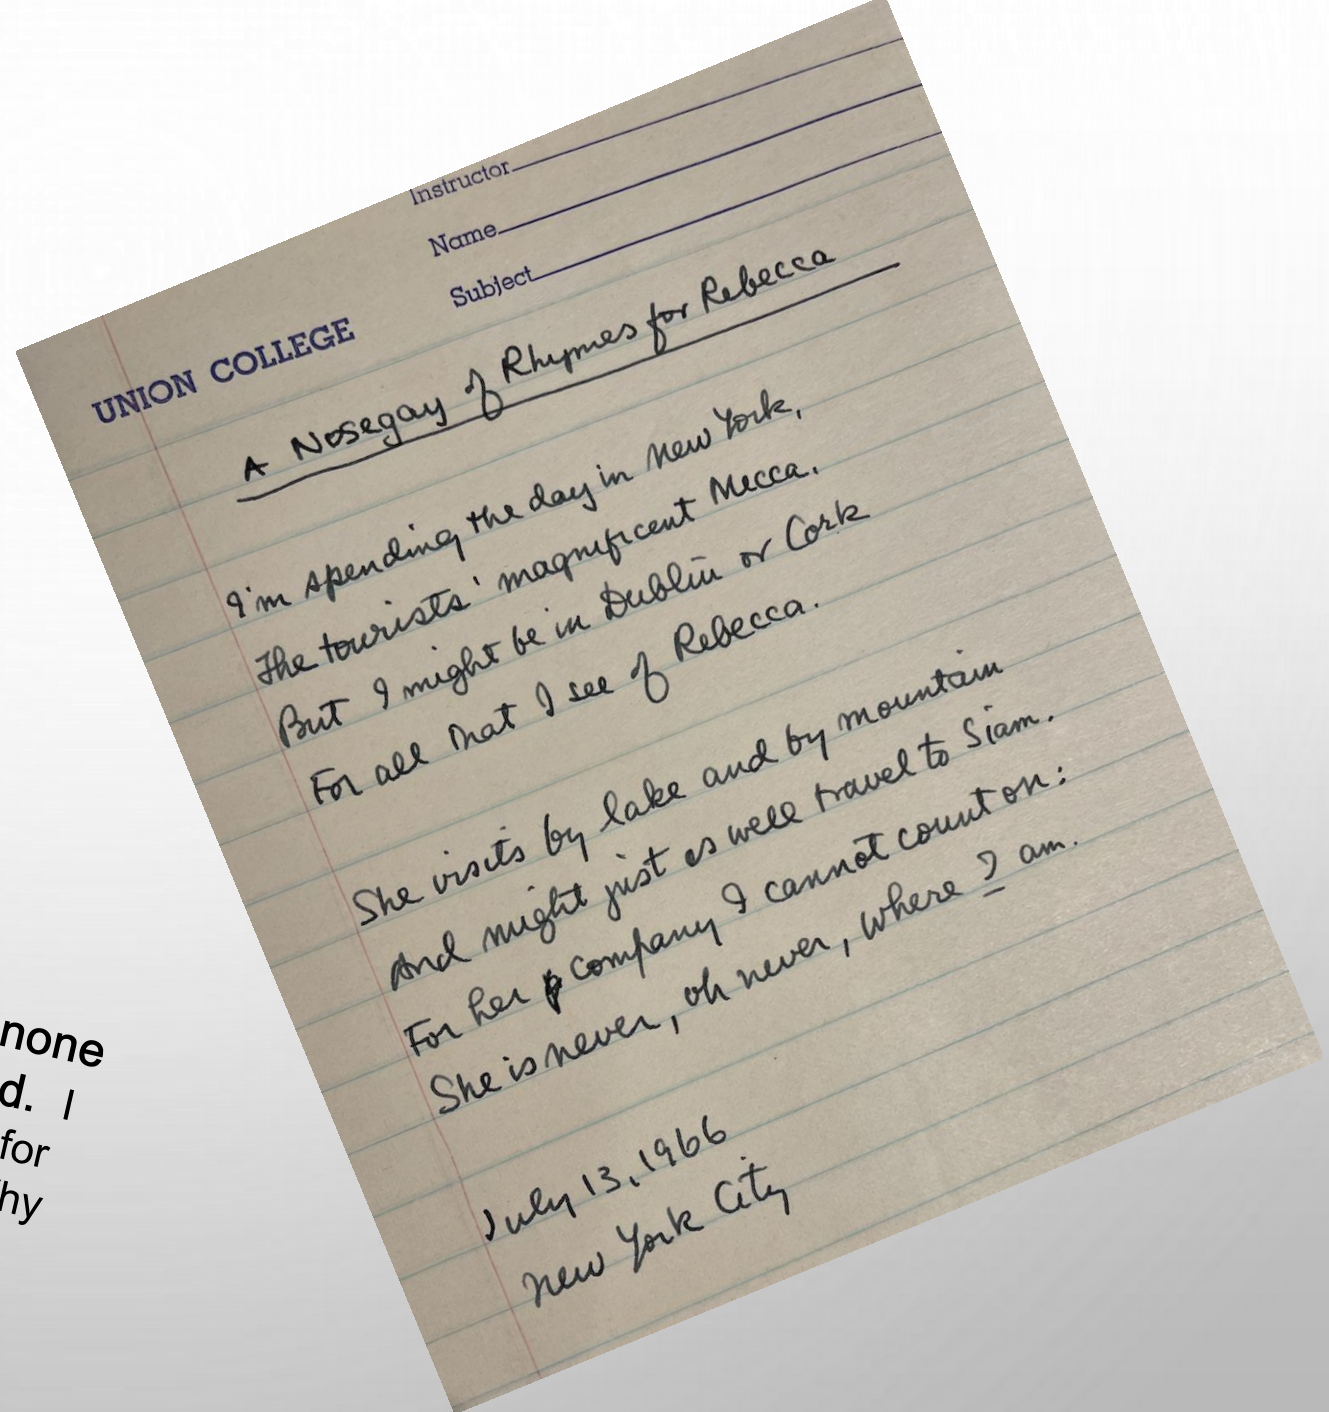 Instructor
Name
Subject
UNION COLLEGE
A Nosegay of Rhymes for Rebecca
I'm spending the day in New York,
The tourists' magnificent Mecca.
But I might be in Dublin or Cork
For all that I see of Rebecca.
She visits by lake and by mountain
And might just as well travel to Siam.
For her company I cannot count on:
She is never, oh never, where I am.
July 13, 1966
New York City
none
d. I
for
hy